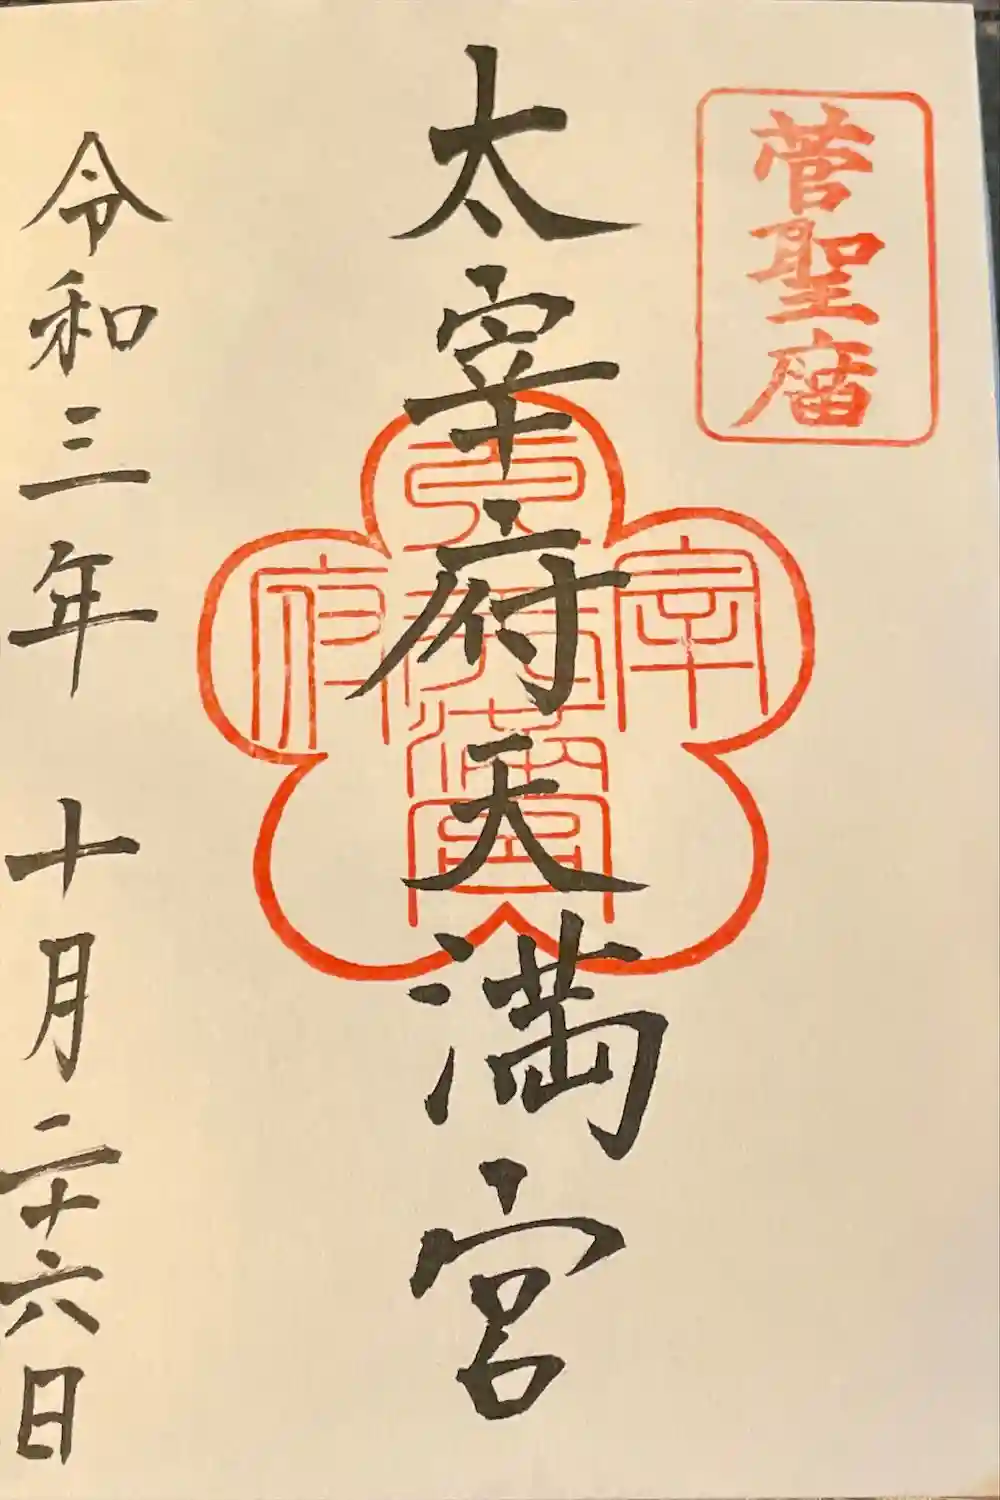 菅聖庿
太宰府天満宮
太宰府天満宮
令和三年 十月二十六日